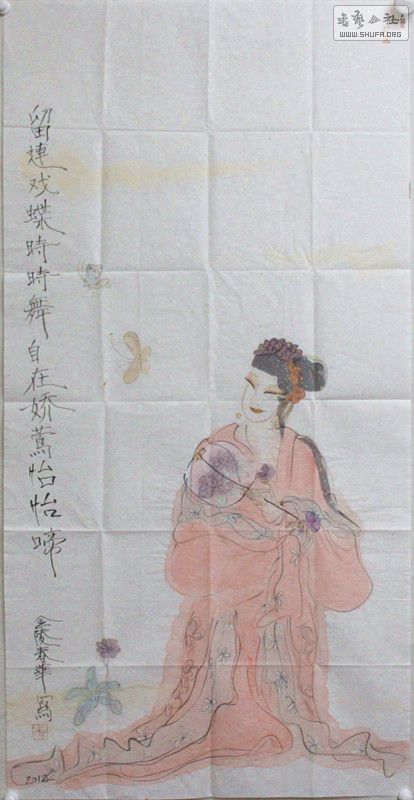 留連戏蝶時時舞自在娇鶯怡怡啼
金陵春華寫
2012
書藝公社
WWW.SHUFA.ORG